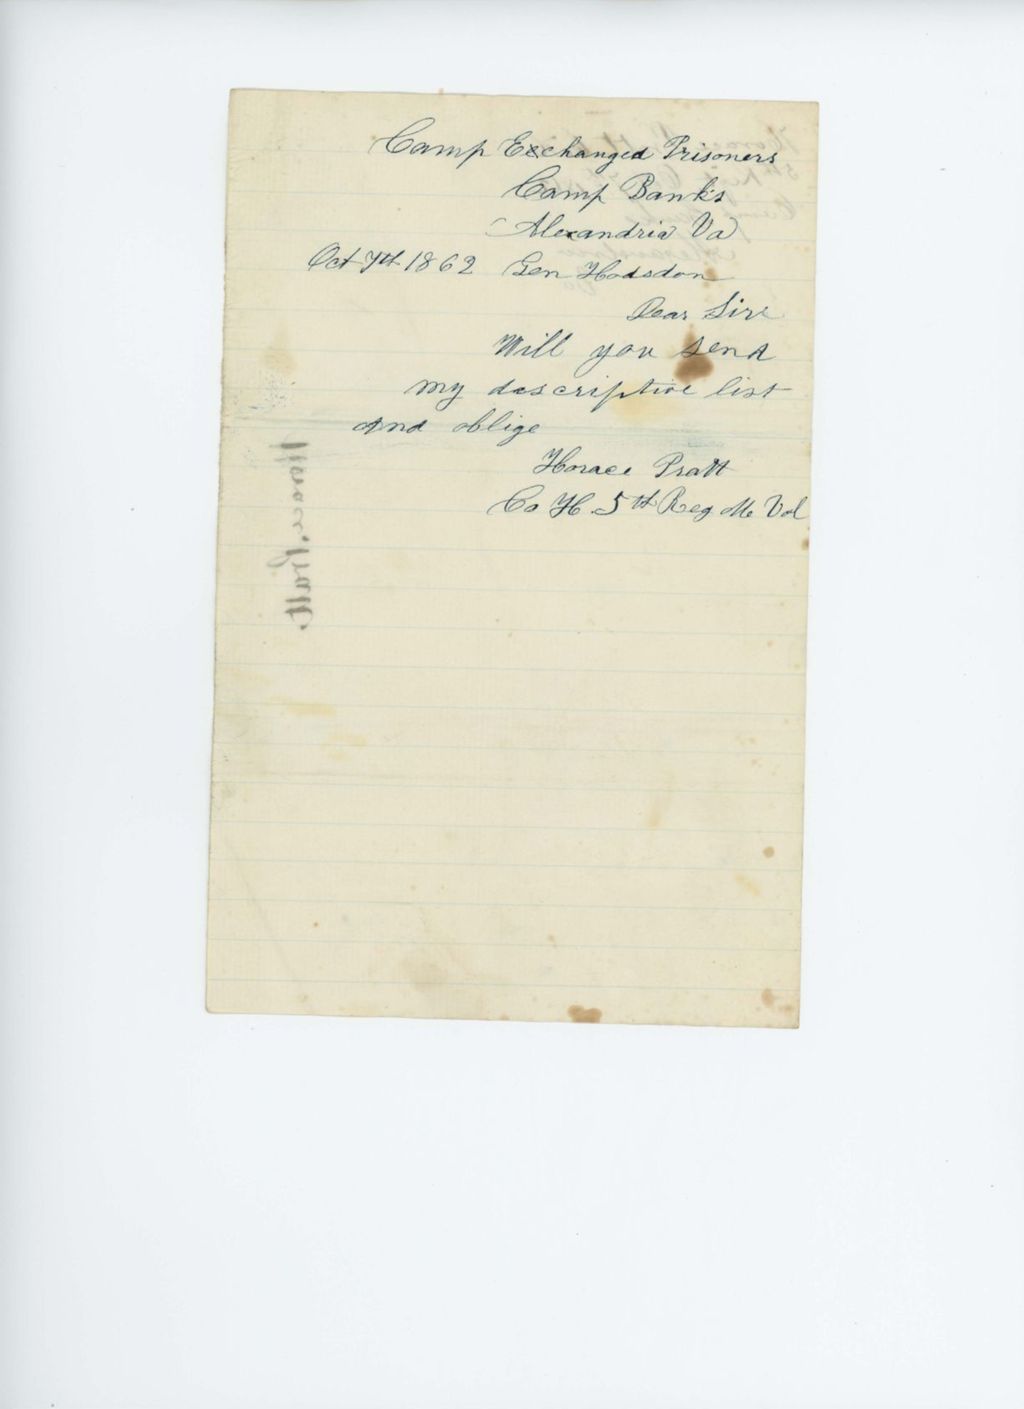 Camp Exchanged Prisoners
Camp Banks
Alexandria Va
Oct 7th 1862 Gen Hodsdon
Dear Sire
Will you send
my descriptive list
and oblige
Horace Pratt
Co H 5th Reg Me Vol